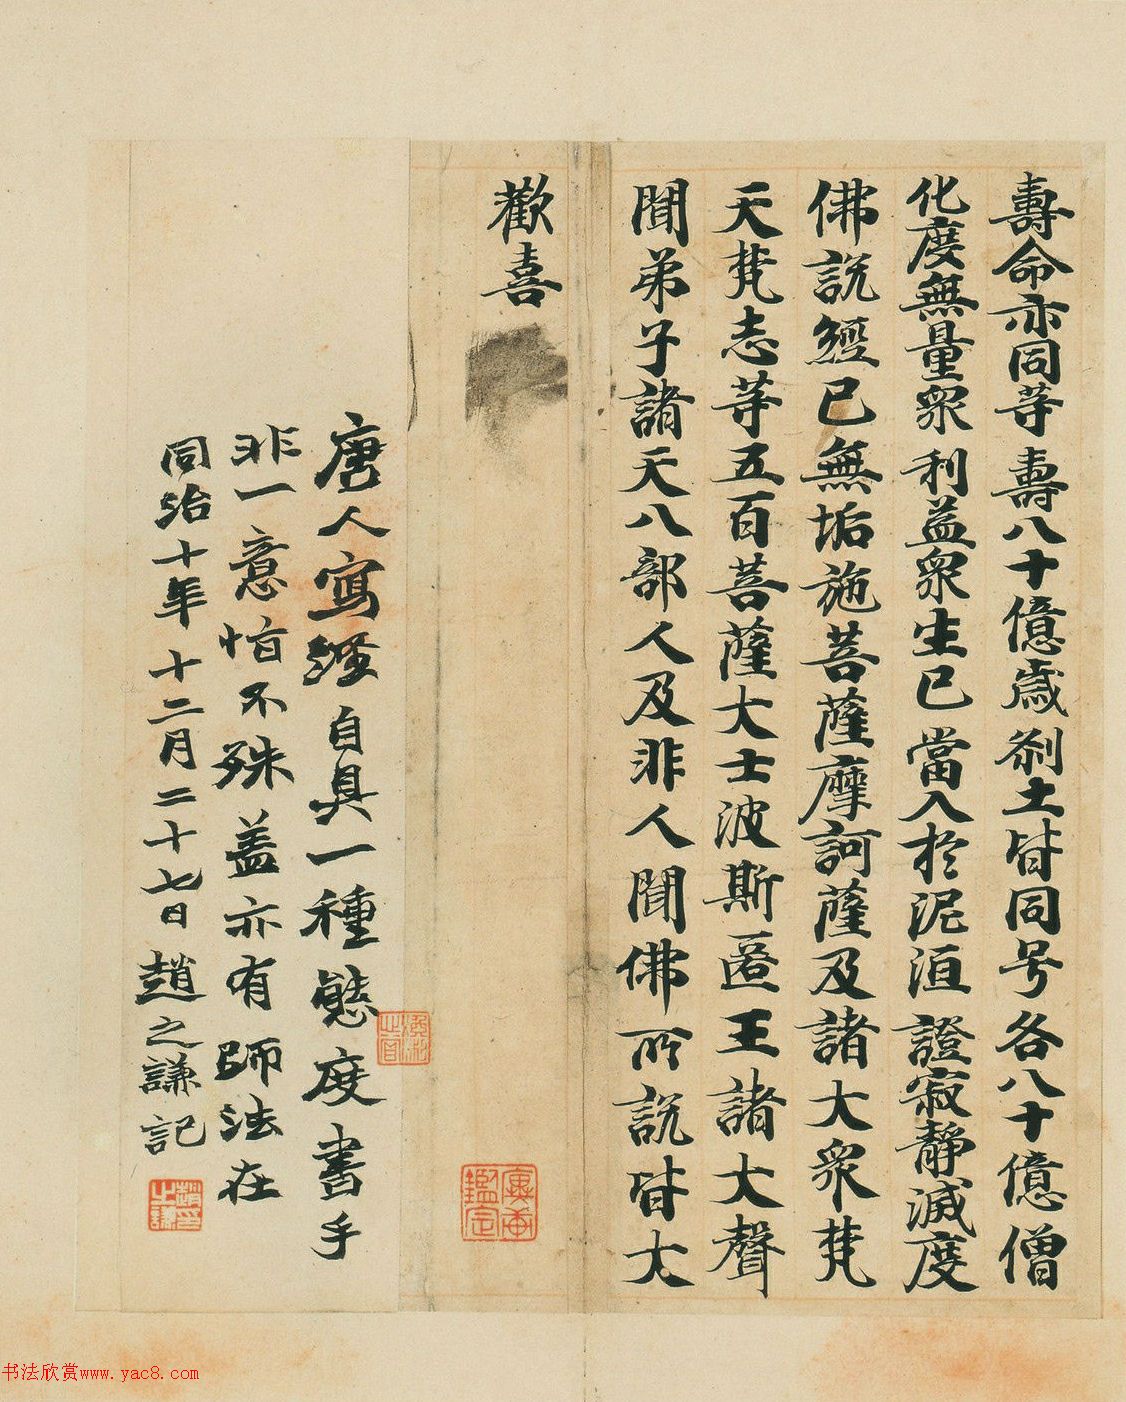 壽命亦同等壽八十億歲刹土皆同号各八十億僧
化度無量衆利益衆生已當入於泥洹證寂静滅度
佛說經已無垢施菩薩摩訶薩及諸大衆梵
天梵志等五百菩薩大士波斯匿王諸大聲
聞弟子諸天八部人及非人聞佛所說皆大
歡喜
唐人寫經自具一種態度書手
非一意恉不殊盖亦有師法在
同治十年十二月二十七日趙之謙記
鑑定
書法欣赏www.yac8.com